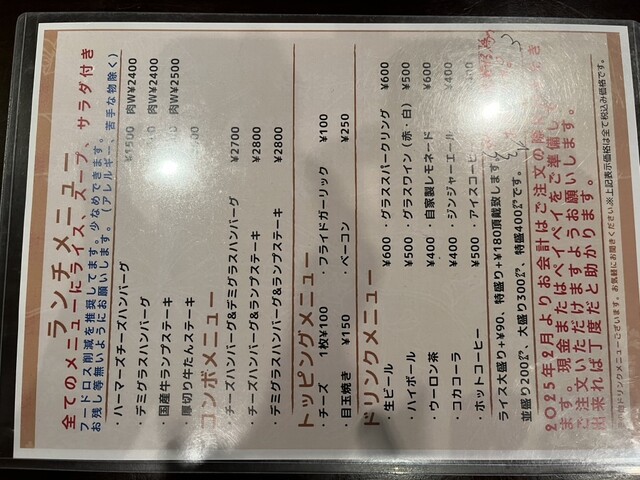 ランチメニュー
全てのメニューにライス、スープ、サラダ付き
フードロス削減を推奨してます。少なめできます。
お残し等無いようにお願いします。（アレルギー、苦手な物除く）
・ハーマーズチーズハンバーグ ¥1500 肉W¥2400
・デミグラスハンバーグ 肉W¥2400
・国産牛ランプステーキ 肉W¥2500
・厚切り牛たんステーキ
コンボメニュー
・チーズハンバーグ&デミグラスハンバーグ ¥2700
・チーズハンバーグ&ランプステーキ ¥2800
・デミグラスハンバーグ&ランプステーキ ¥2800
トッピングメニュー
・チーズ 1枚¥100 ・フライドガーリック ¥100
・目玉焼き ¥150 ・ベーコン ¥250
ドリンクメニュー
・生ビール ¥600 ・グラススパークリング ¥600
・ハイボール ¥500 ・グラスワイン（赤・白） ¥500
・ウーロン茶 ¥400 ・自家製レモネード ¥600
・コカコーラ ¥400 ・ジンジャーエール ¥400
・ホットコーヒー ¥500 ・アイスコーヒー
ライス大盛り+¥90、特盛り+¥180頂戴致します
並盛り200㌘、大盛り300㌘、特盛400㌘です。
2025年2月よりお会計はご注文の際
ます。現金またはペイペイをご準備し
ご注文いただけますようお願いします。
出来れば丁度だと助かります。
ドリンクメニューございます。お気軽にお聞きください※上記表示価格は全て税込み価格です。